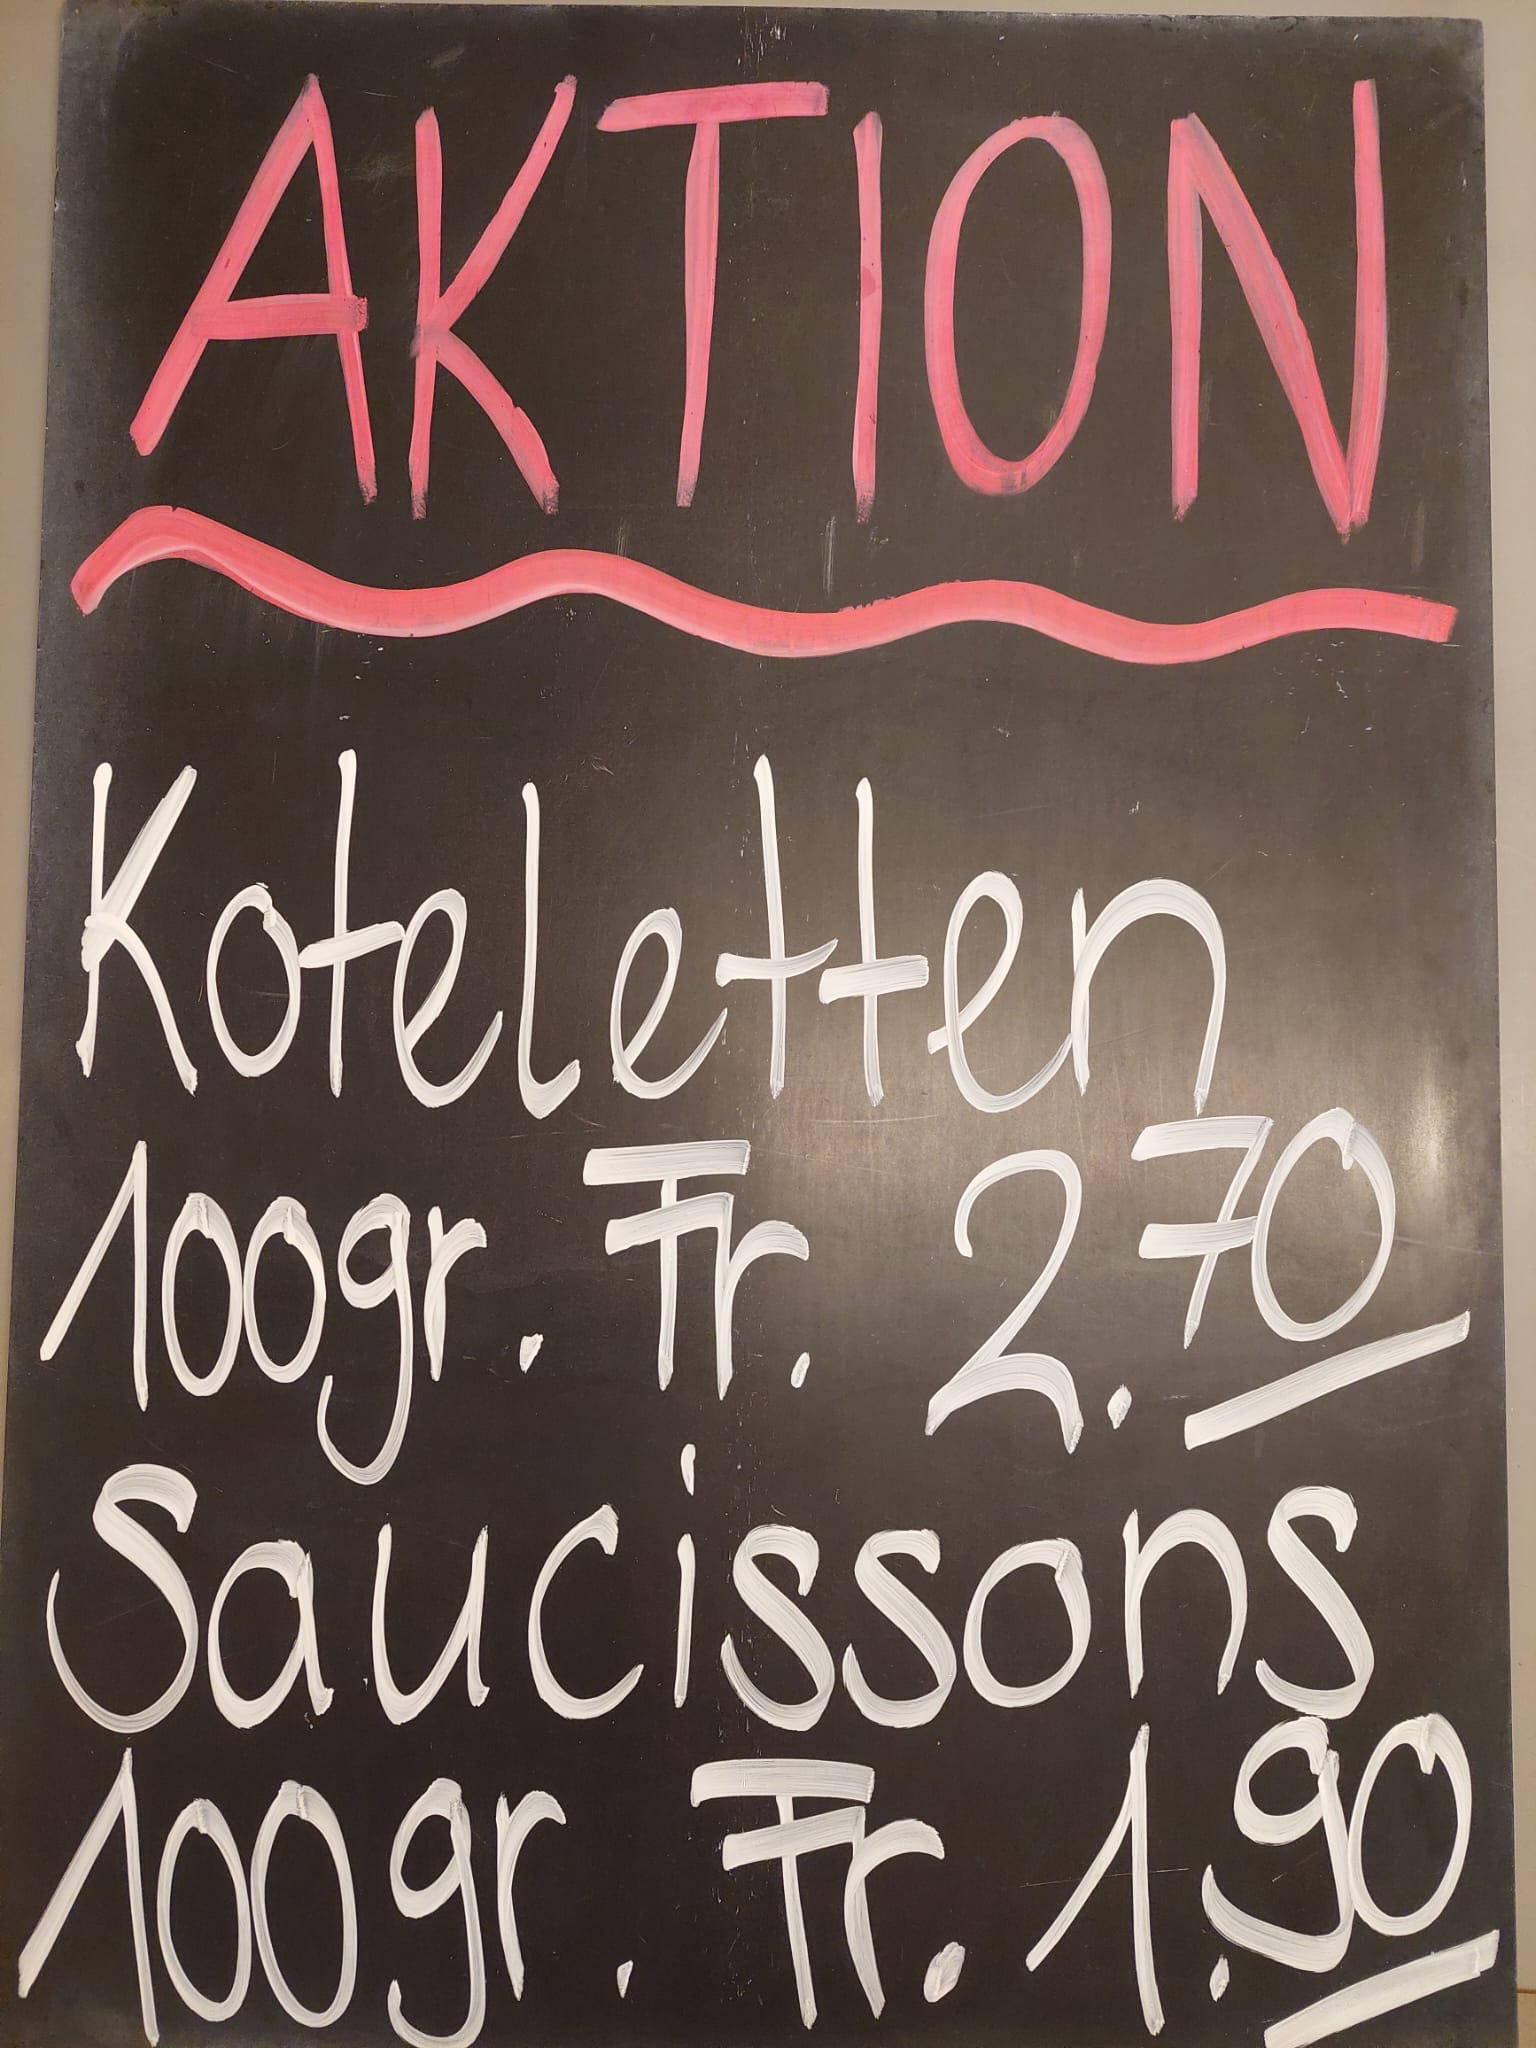 AKTION
Koteletten
100gr. Fr. 2.70
Saucissons
100gr. Fr. 1.90